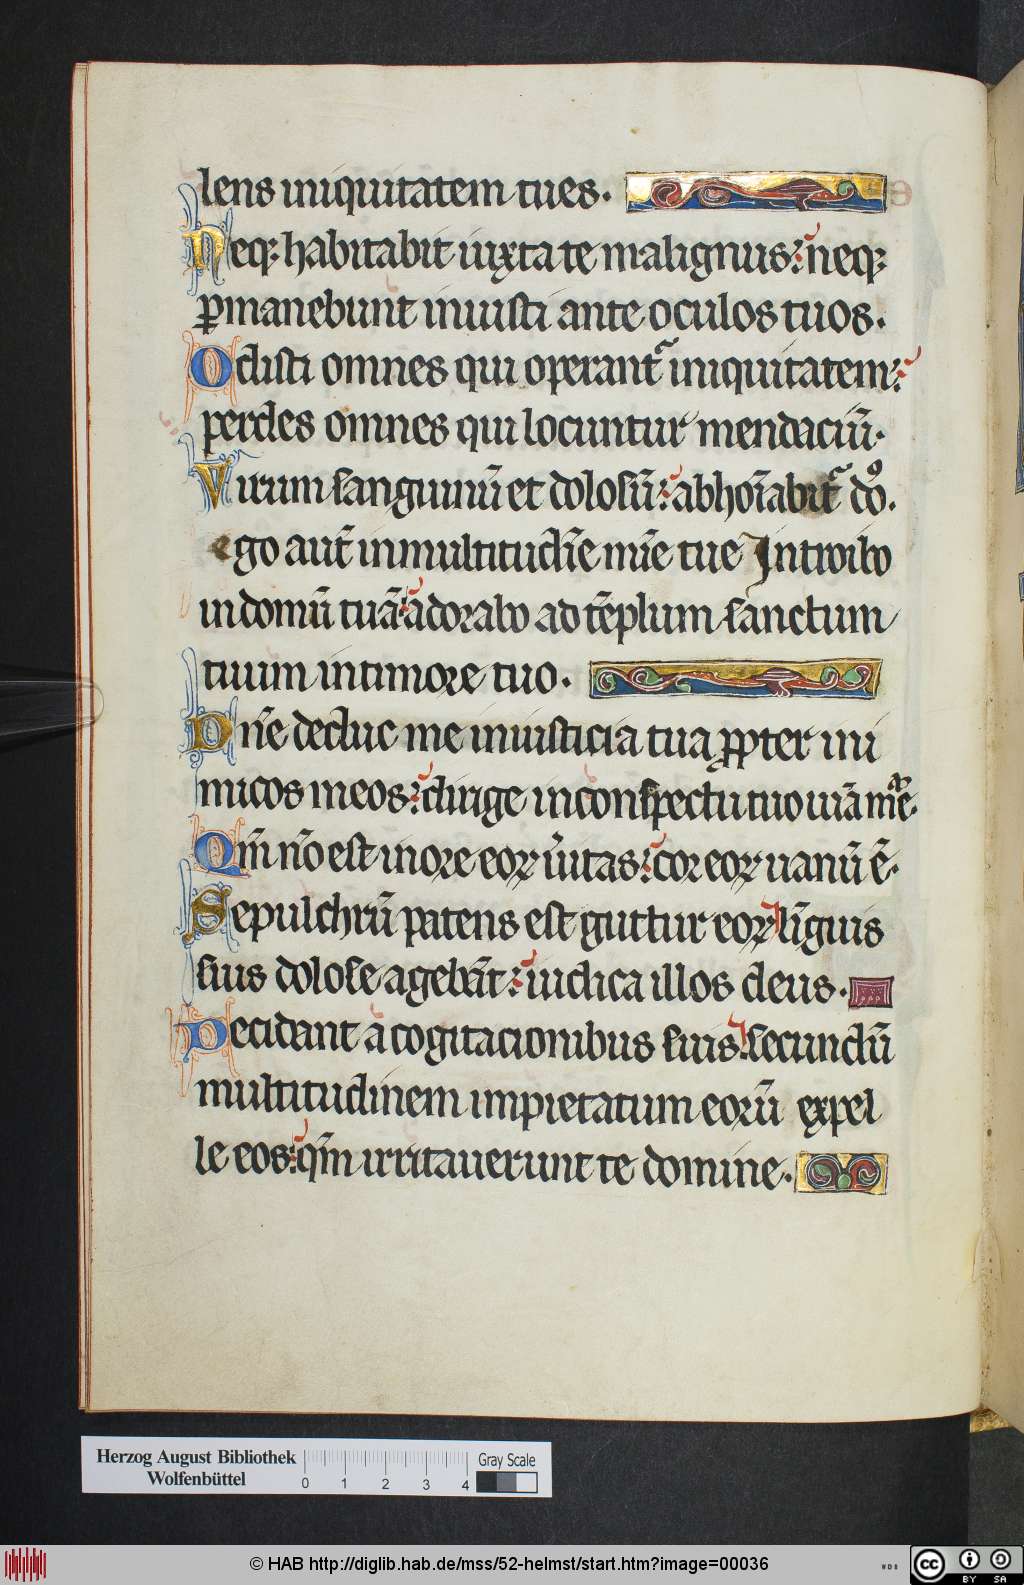 lens iniquitatem tu es.
Neq; habitabit iuxta te malignus: neq;
ꝑmanebunt iniusti ante oculos tuos.
Odisti omnes qui operant᷑ iniquitatem:
perdes omnes qui locuntur mendaciū.
Virum sanguinū et dolosū: abhoīabit᷑ dō.
ego aut̄ in multitudīe mīe tue Introibo
in domū tuā: adorabo ad tēplum sanctum
tuum in timore tuo.
Dn̄e deduc me in iusticia tua ꝓpter ini
micos meos: dirige in conspectu tuo uiā meā.
Qm̄ nō est in ore eoꝝ u̓itas: cor eoꝝ uanū ē.
Sepulchrū patens est guttur eoꝝ līguis
suis dolose agebāt: iudica illos deus.
Decidant a cogitacionibus suis: secundū
multitudinem impietatum eorū expel
le eos: qm̄ irritauerunt te domine.
Herzog August Bibliothek
Wolfenbüttel
0 1 2 3 4
Gray Scale
© HAB http://diglib.hab.de/mss/52-helmst/start.htm?image=00036
WDB
cc BY SA